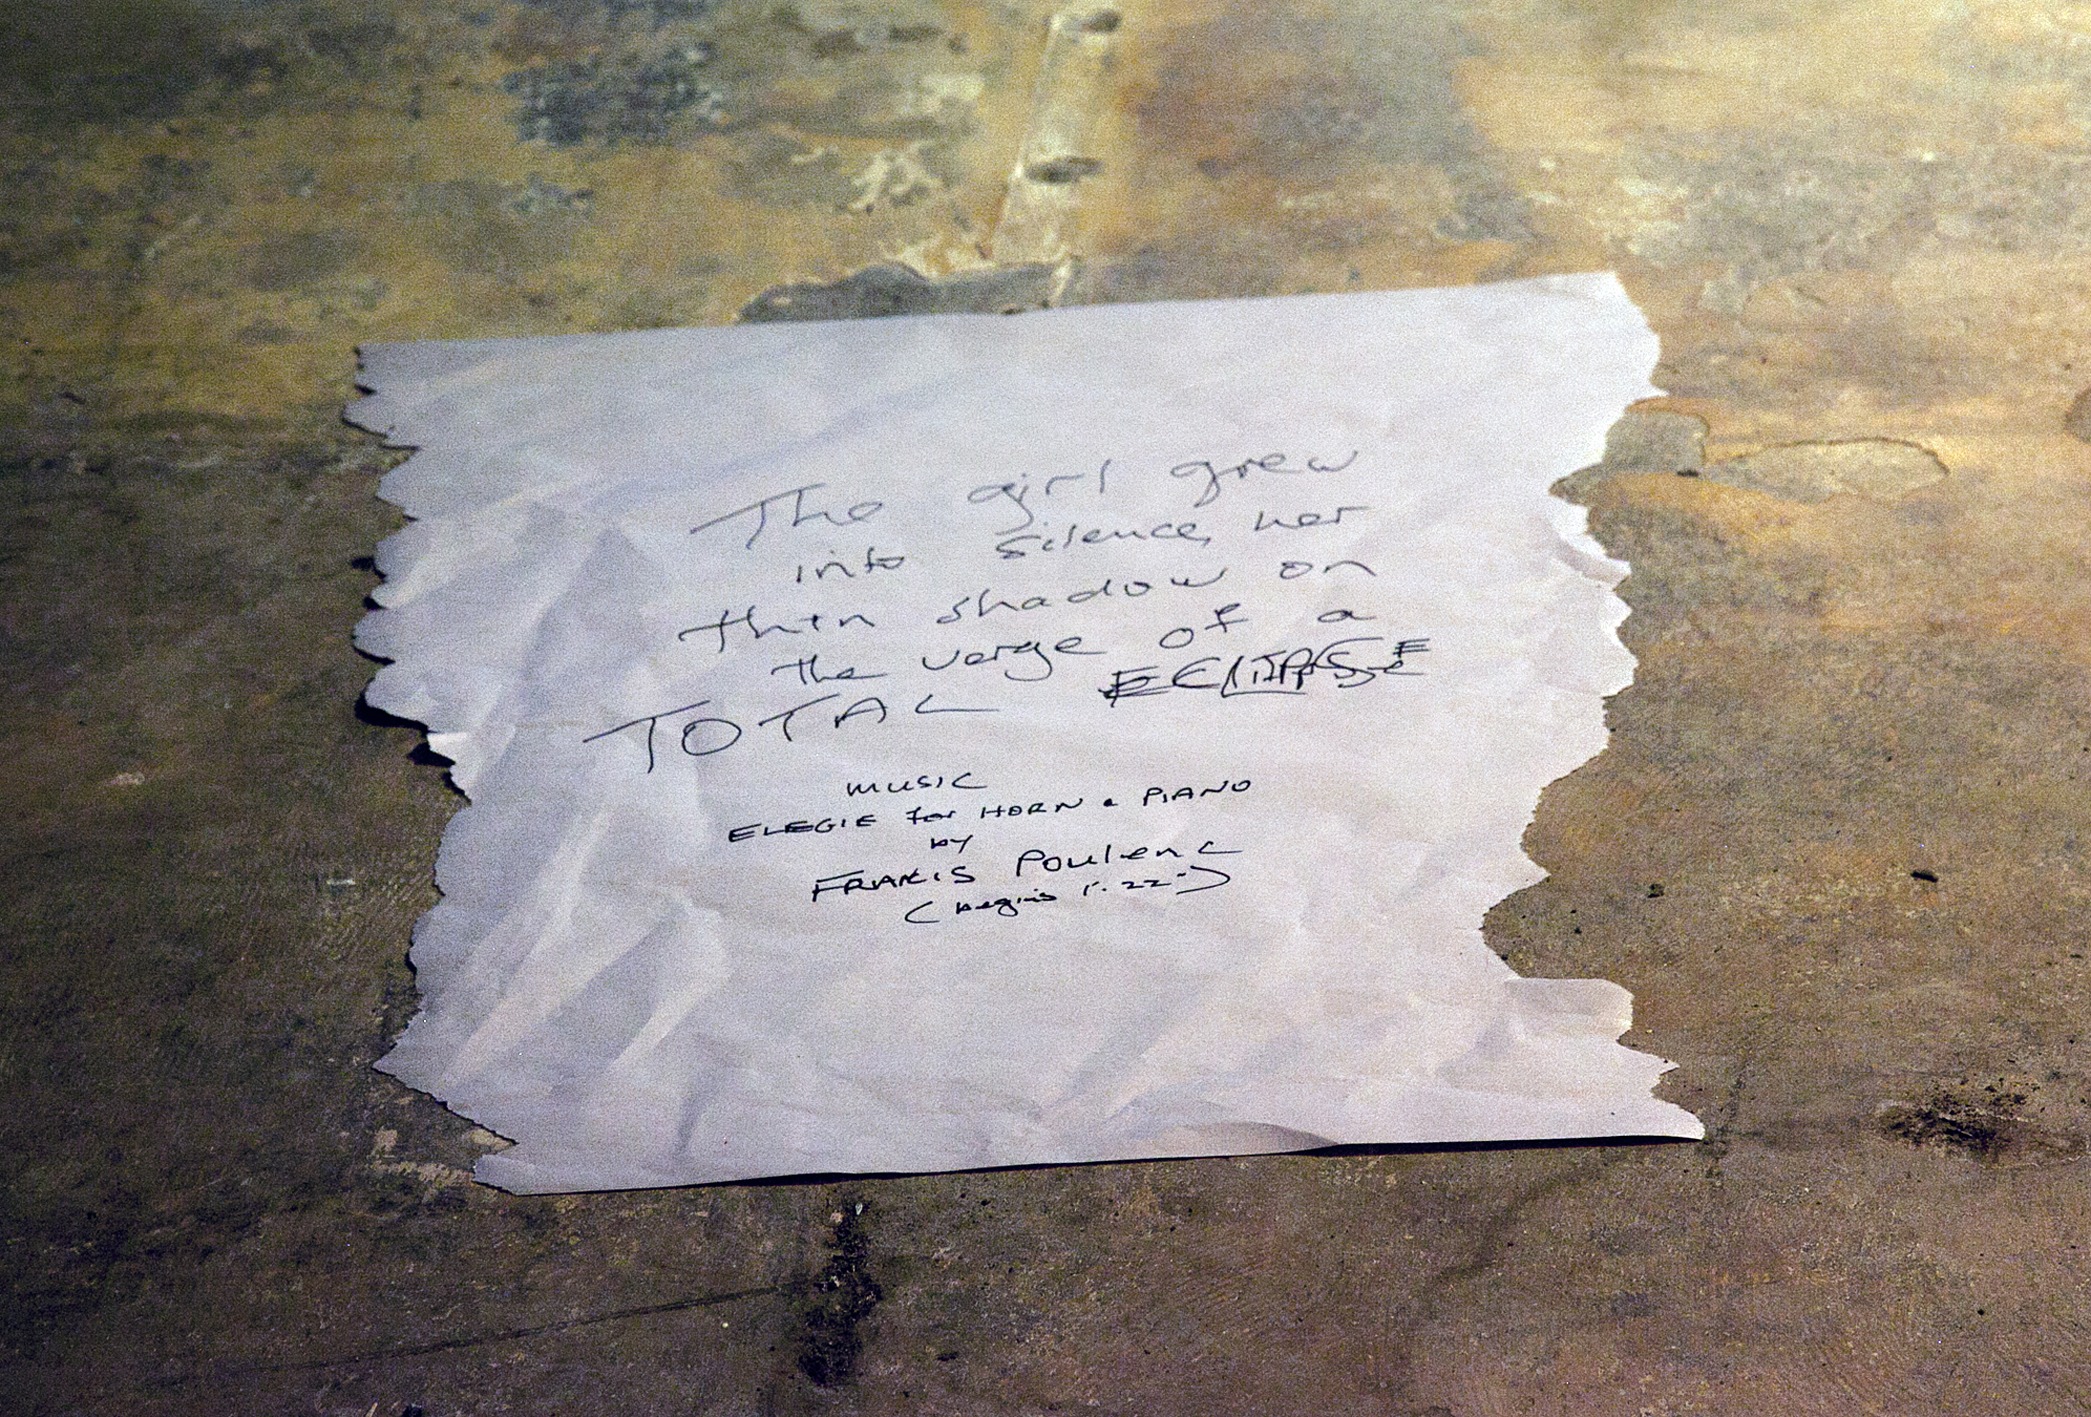 The girl grew
into silence, her
thin shadow on
the verge of a
TOTAL ECLIPSE
music
ELEGIE for HORN & PIANO
by
FRANCIS Poulenc
(begins 1.22-)